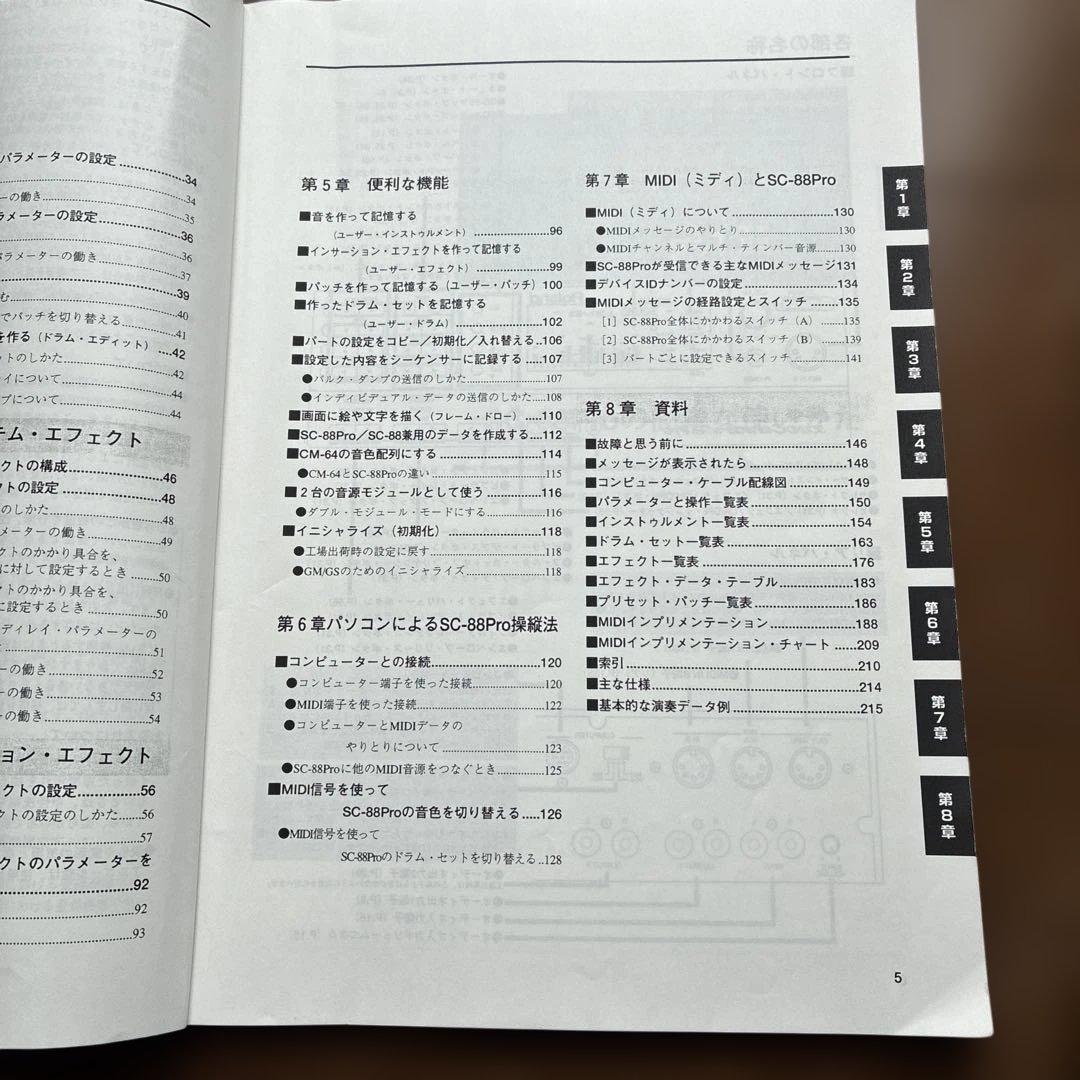 パラメーターの設定 ............34
............34
ーの働き............34
ラメーターの設定............35
............36
パラメーターの働き............36
............37
............39
む............40
でパッチを切り替える............41
を作る（ドラム・エディット）....42
ットのしかた............42
イについて............44
ブについて............44
テム・エフェクト
ェクトの構成............46
クトの設定............48
のしかた............48
メーターの働き............49
ェクトのかかり具合を、
に対して設定するとき......50
ェクトのかかり具合を、
に設定するとき............50
ディレイ・パラメーターの
............51
ーの働き............52
ーの働き............53
ーの働き............54
ョン・エフェクト
クトの設定............56
クトの設定のしかた......56
............57
クトのパラメーターを
............92
............92
............93
第５章　便利な機能
■音を作って記憶する
（ユーザー・インストゥルメント）............96
■インサーション・エフェクトを作って記憶する
（ユーザー・エフェクト）............99
■パッチを作って記憶する（ユーザー・パッチ）100
■作ったドラム・セットを記憶する
（ユーザー・ドラム）............102
■パートの設定をコピー／初期化／入れ替える..106
■設定した内容をシーケンサーに記録する.....107
●バルク・ダンプの送信のしかた............107
●インディビデュアル・データの送信のしかた.....108
■画面に絵や文字を描く（フレーム・ドロー）.....110
■SC-88Pro／SC-88兼用のデータを作成する....112
■CM-64の音色配列にする............114
●CM-64とSC-88Proの違い............115
■２台の音源モジュールとして使う............116
●ダブル・モジュール・モードにする............116
■イニシャライズ（初期化）............118
●工場出荷時の設定に戻す............118
●GM/GSのためのイニシャライズ............118
第６章パソコンによるSC-88Pro操縦法
■コンピューターとの接続............120
●コンピューター端子を使った接続............120
●MIDI端子を使った接続............122
●コンピューターとMIDIデータの
やりとりについて............123
●SC-88Proに他のMIDI音源をつなぐとき............125
■MIDI信号を使って
SC-88Proの音色を切り替える.....126
●MIDI信号を使って
SC-88Proのドラム・セットを切り替える..128
第７章　MIDI（ミディ）とSC-88Pro
■MIDI（ミディ）について............130
●MIDIメッセージのやりとり............130
●MIDIチャンネルとマルチ・ティンバー音源......130
■SC-88Proが受信できる主なMIDIメッセージ131
■デバイスIDナンバーの設定............134
■MIDIメッセージの経路設定とスイッチ......135
［1］SC-88Pro全体にかかわるスイッチ（A）......135
［2］SC-88Pro全体にかかわるスイッチ（B）......139
［3］パートごとに設定できるスイッチ............141
第８章　資料
■故障と思う前に............146
■メッセージが表示されたら............148
■コンピューター・ケーブル配線図............149
■パラメーターと操作一覧表............150
■インストゥルメント一覧表............154
■ドラム・セット一覧表............163
■エフェクト一覧表............176
■エフェクト・データ・テーブル............183
■プリセット・パッチ一覧表............186
■MIDIインプリメンテーション............188
■MIDIインプリメンテーション・チャート......209
■索引............210
■主な仕様............214
■基本的な演奏データ例............215
第1章
第2章
第3章
第4章
第5章
第6章
第7章
第8章
5